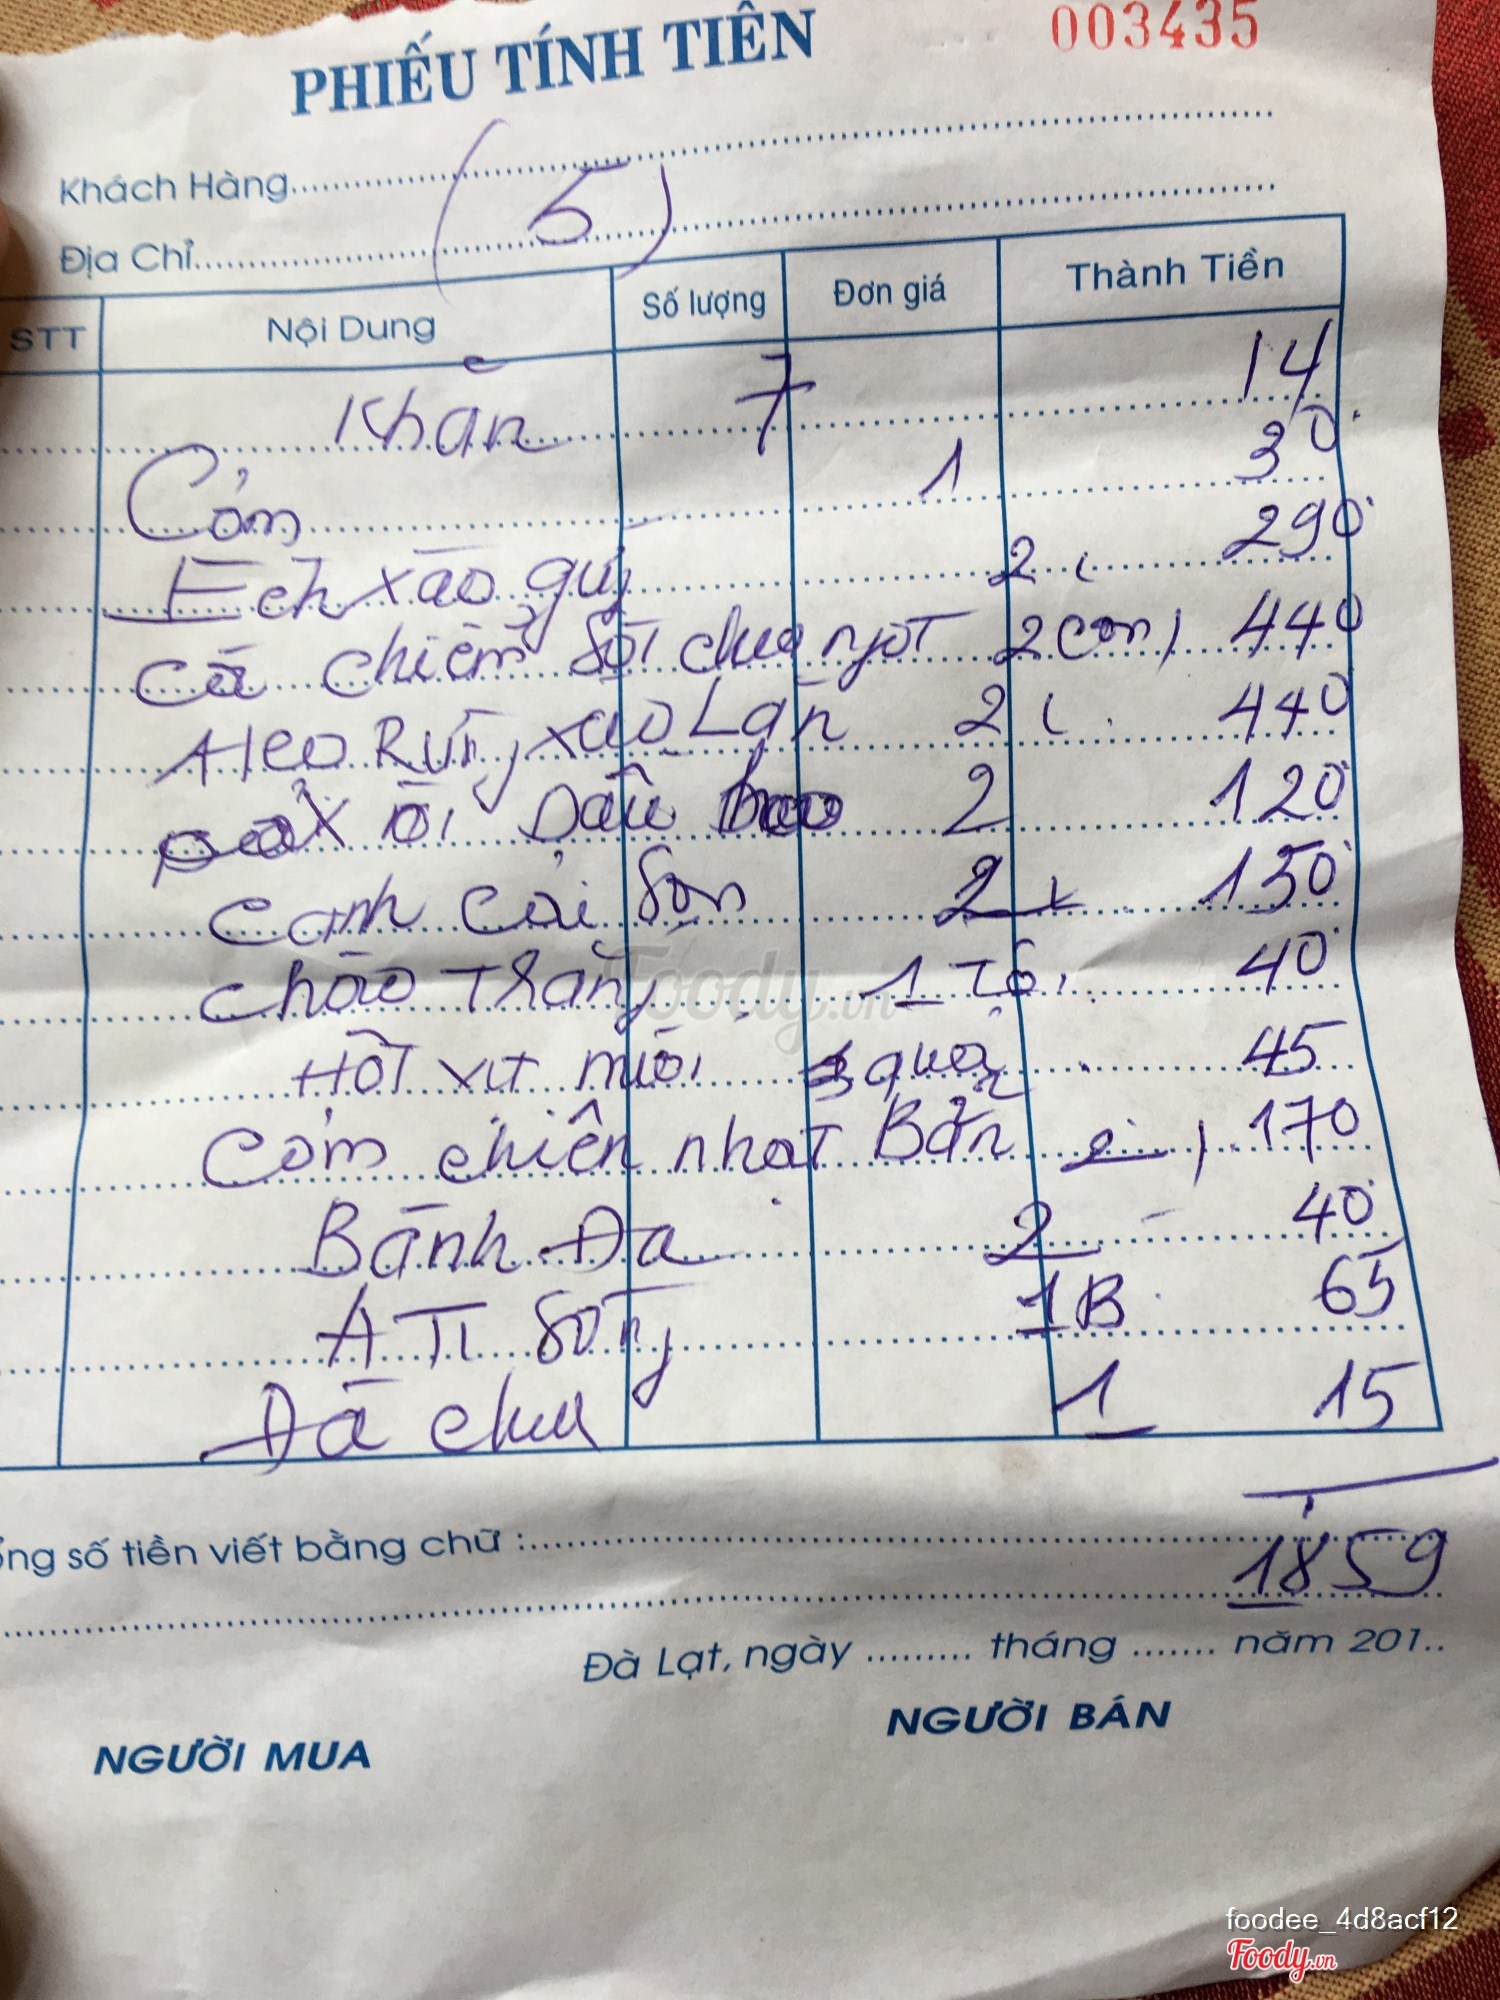 PHIẾU TÍNH TIỀN 003435
Khách Hàng
(5)
Địa Chỉ
STT Nội Dung Số lượng Đơn giá Thành Tiền
Khăn 7 14
Cơm 1 30
Ếch xào 2 290
cá chiêm sốt chua ngọt 2 con 440
Heo Rừng xào Lăn 2 440
xôi Dầu 2 120
canh cải son 2 150
cháo Trắng 1 Tô 40
Hột vịt muối 3 quả 45
Cơm chiên nhật Bản 2 170
Bánh Đa 2 40
ATI sống 1B 65
Đá chu 1 15
ổng số tiền viết bằng chữ :
1859
Đà Lạt, ngày ......... tháng ....... năm 201..
NGƯỜI MUA NGƯỜI BÁN
Foody.vn
foodee_4d8acf12
Foody.vn